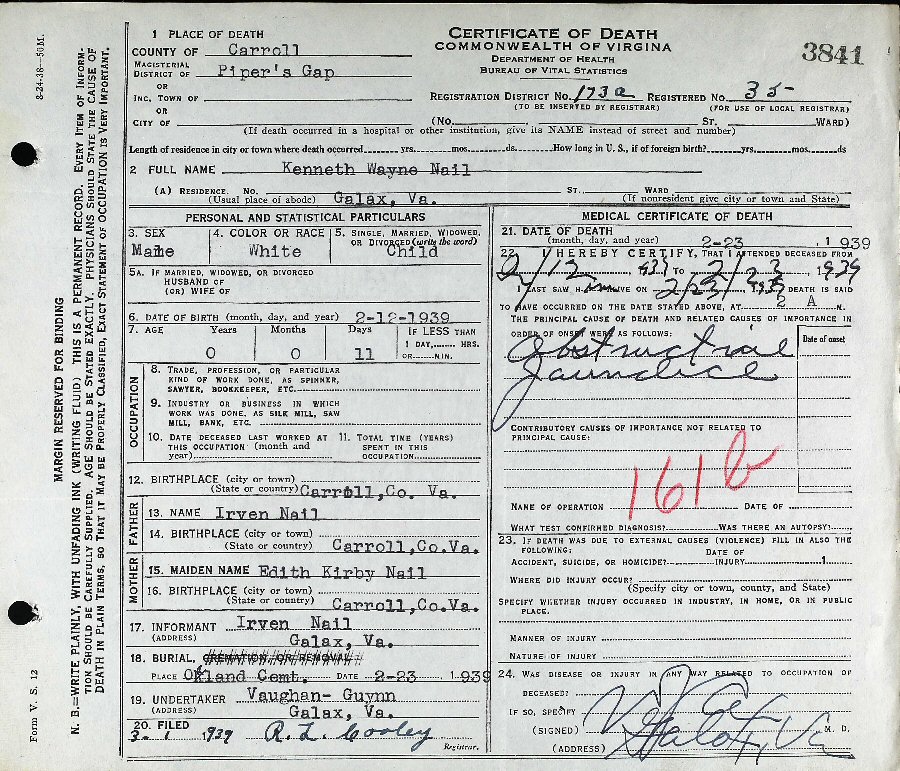 8-24-38—50M.
MARGIN RESERVED FOR BINDING
N. B.—WRITE PLAINLY, WITH UNFADING INK (WRITING FLUID). THIS IS A PERMANENT RECORD. EVERY ITEM OF INFORM-
TION SHOULD BE CAREFULLY SUPPLIED. AGE SHOULD BE STATED EXACTLY. PHYSICIANS SHOULD STATE THE CAUSE OF
DEATH IN PLAIN TERMS, SO THAT IT MAY BE PROPERLY CLASSIFIED. EXACT STATEMENT OF OCCUPATION IS VERY IMPORTANT.
Form V. S. 12
CERTIFICATE OF DEATH
COMMONWEALTH OF VIRGINIA
DEPARTMENT OF HEALTH
BUREAU OF VITAL STATISTICS
3841
1 PLACE OF DEATH
COUNTY OF Carroll
MAGISTERIAL
DISTRICT OF Piper's Gap
OR
INC. TOWN OF
OR
CITY OF
REGISTRATION DISTRICT NO. 173a REGISTERED NO. 35-
(TO BE INSERTED BY REGISTRAR) (FOR USE OF LOCAL REGISTRAR)
(NO. ST. WARD)
(If death occurred in a hospital or other institution, give its NAME instead of street and number)
Length of residence in city or town where death occurred yrs. mos. ds. How long in U. S., if of foreign birth? yrs. mos. ds
2 FULL NAME Kenneth Wayne Nail
(A) RESIDENCE. NO. ST. WARD
(Usual place of abode) Galax, Va. (If nonresident give city or town and State)
PERSONAL AND STATISTICAL PARTICULARS
3. SEX 4. COLOR OR RACE 5. SINGLE, MARRIED, WIDOWED,
OR DIVORCED (write the word)
White Child
5A. IF MARRIED, WIDOWED, OR DIVORCED
HUSBAND OF
(OR) WIFE OF
6. DATE OF BIRTH (month, day, and year) 2-12-1939
7. AGE Years Months Days IF LESS THAN
1 DAY, HRS.
0 0 11 OR MIN.
OCCUPATION
8. TRADE, PROFESSION, OR PARTICULAR
KIND OF WORK DONE, AS SPINNER,
SAWYER, BOOKKEEPER, ETC.
9. INDUSTRY OR BUSINESS IN WHICH
WORK WAS DONE, AS SILK MILL, SAW
MILL, BANK, ETC.
10. DATE DECEASED LAST WORKED AT 11. TOTAL TIME (YEARS)
THIS OCCUPATION (month and SPENT IN THIS
year) OCCUPATION
12. BIRTHPLACE (city or town)
(State or country) Carroll,Co. Va.
FATHER
13. NAME Irven Nail
14. BIRTHPLACE (city or town)
(State or country) Carroll,Co.Va.
MOTHER
15. MAIDEN NAME Edith Kirby Nail
16. BIRTHPLACE (city or town)
(State or country) Carroll,Co.Va.
17. INFORMANT Irven Nail
(ADDRESS) Galax, Va.
18. BURIAL, CREMATION, OR REMOVAL
PLACE Okland Cemt. DATE 2-23 1939
19. UNDERTAKER Vaughan- Guynn
(ADDRESS) Galax, Va.
20. FILED
3- 1 1939 R. L. Cooley
Registrar.
MEDICAL CERTIFICATE OF DEATH
21. DATE OF DEATH
(month, day, and year) 2-23 , 1939
22. I HEREBY CERTIFY, THAT I ATTENDED DECEASED FROM
2/12 , 1939 TO 2/23 , 1939
I LAST SAW H im ALIVE ON 2/23/ 1939 DEATH IS SAID
TO HAVE OCCURRED ON THE DATE STATED ABOVE, AT 2 A M.
THE PRINCIPAL CAUSE OF DEATH AND RELATED CAUSES OF IMPORTANCE IN
ORDER OF ONSET WERE AS FOLLOWS: Date of onset
Jaundice
CONTRIBUTORY CAUSES OF IMPORTANCE NOT RELATED TO
PRINCIPAL CAUSE:
161b
NAME OF OPERATION DATE OF
WHAT TEST CONFIRMED DIAGNOSIS? WAS THERE AN AUTOPSY?
23. IF DEATH WAS DUE TO EXTERNAL CAUSES (VIOLENCE) FILL IN ALSO THE
FOLLOWING: DATE OF
ACCIDENT, SUICIDE, OR HOMICIDE? INJURY 1
WHERE DID INJURY OCCUR?
(Specify city or town, county, and State)
SPECIFY WHETHER INJURY OCCURRED IN INDUSTRY, IN HOME, OR IN PUBLIC
PLACE.
MANNER OF INJURY
NATURE OF INJURY
24. WAS DISEASE OR INJURY IN ANY WAY RELATED TO OCCUPATION OF
DECEASED?
IF SO, SPECIFY
(SIGNED) M. D.
(ADDRESS) Galax, Va